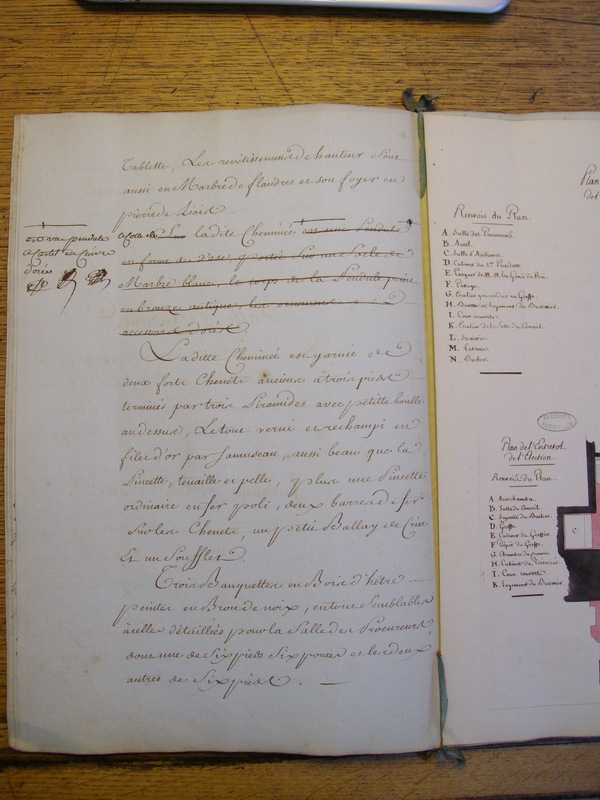 Tablette, Les revêtissemens de hauteur sont
aussi en Marbre de flandres et son foyer en
pierre de Liais.
est une pendule
a Cartel en Cuivre
Dorée
ladite Cheminée est une Pendule
en forme de Vase, portée sur un Socle de
Marbre blanc, le corps de la Pendule peint
en bronze antique, les ornements et
accessoires dorés.
Ladite Cheminée est garnie de
deux forts Chenets à trois pieds
terminés par trois Piramides avec petitte boulle
au dessus, Le tout verni et rechampi en
filet d'or par aussi beau que la
Pincette, tenaille et pelle, plus une Pincette
ordinaire en fer poli, deux barres de fer
sur les Chenets, un petit Ballay de Crin
Et un Soufflet.
Trois Banquettes en Bois d'hêtre
peintes en Brou de noix, en tout semblables
à celles détaillées pour la Salle des Procureurs,
dont une de six pieds six pouces et les deux
autres de six pieds. —
Plan
del'
Renvois du Plan.
A. Salle des Procureurs
B.
C. Salle d'Audience
D. Cabinet du 1er Président
E. Parquet de M.M. les Gens du Roi
F. Passage
G. Escalier qui conduit au Greffe
H. Buvette et Logement du Buvetier
I. Cour couverte
K. Escalier de la Salle du Conseil
L.
M. Latrines
N. Bucher
Plan de l'Entresol
de l'Election.
Renvois du Plan.
A. Antichambre
B. Salle du Conseil
C.
D. Greffe
E. Cabinet du Greffier
F. Dépôt du Greffe
G. Chambre
H. Cabinet
I. Cour couverte
K. Logement du Buvetier
C